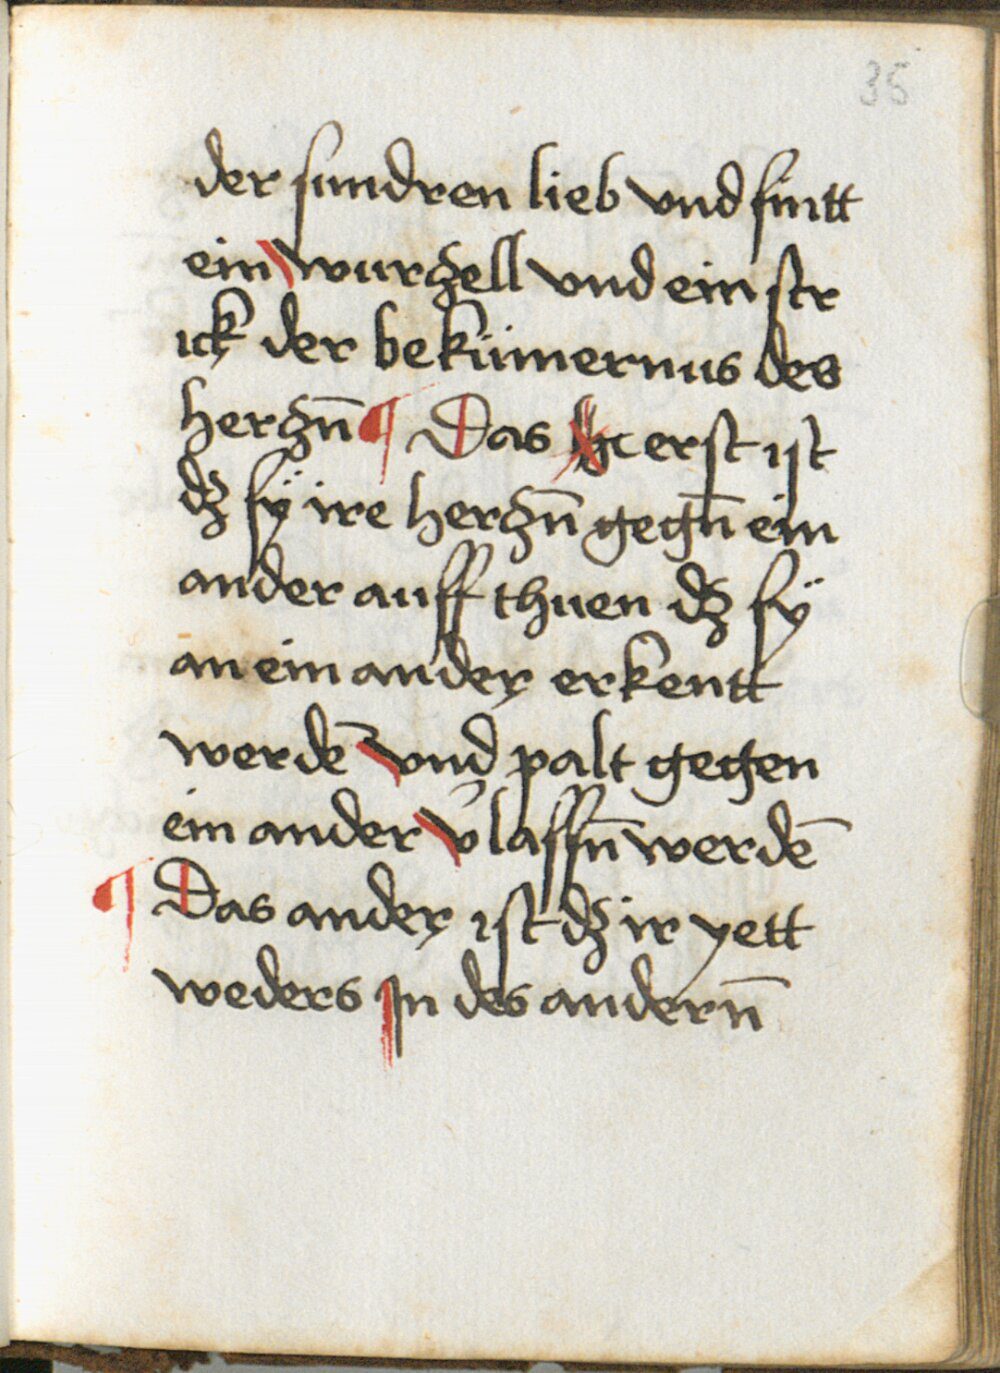 35
der sundren lieb vnd sintt
ein wurczell vnd ein str
ick der bekümernus des
herczn̄ ¶ Das erst ist
dz sÿ ire herczn̄ gegn̄ ein
ander auff thuen dz sÿ
an ein ander erkentt
werdē vnd palt gegen
ein ander v̓lassn̄ werdē
¶ Das ander ist dz ir yett
weders In des andern̄